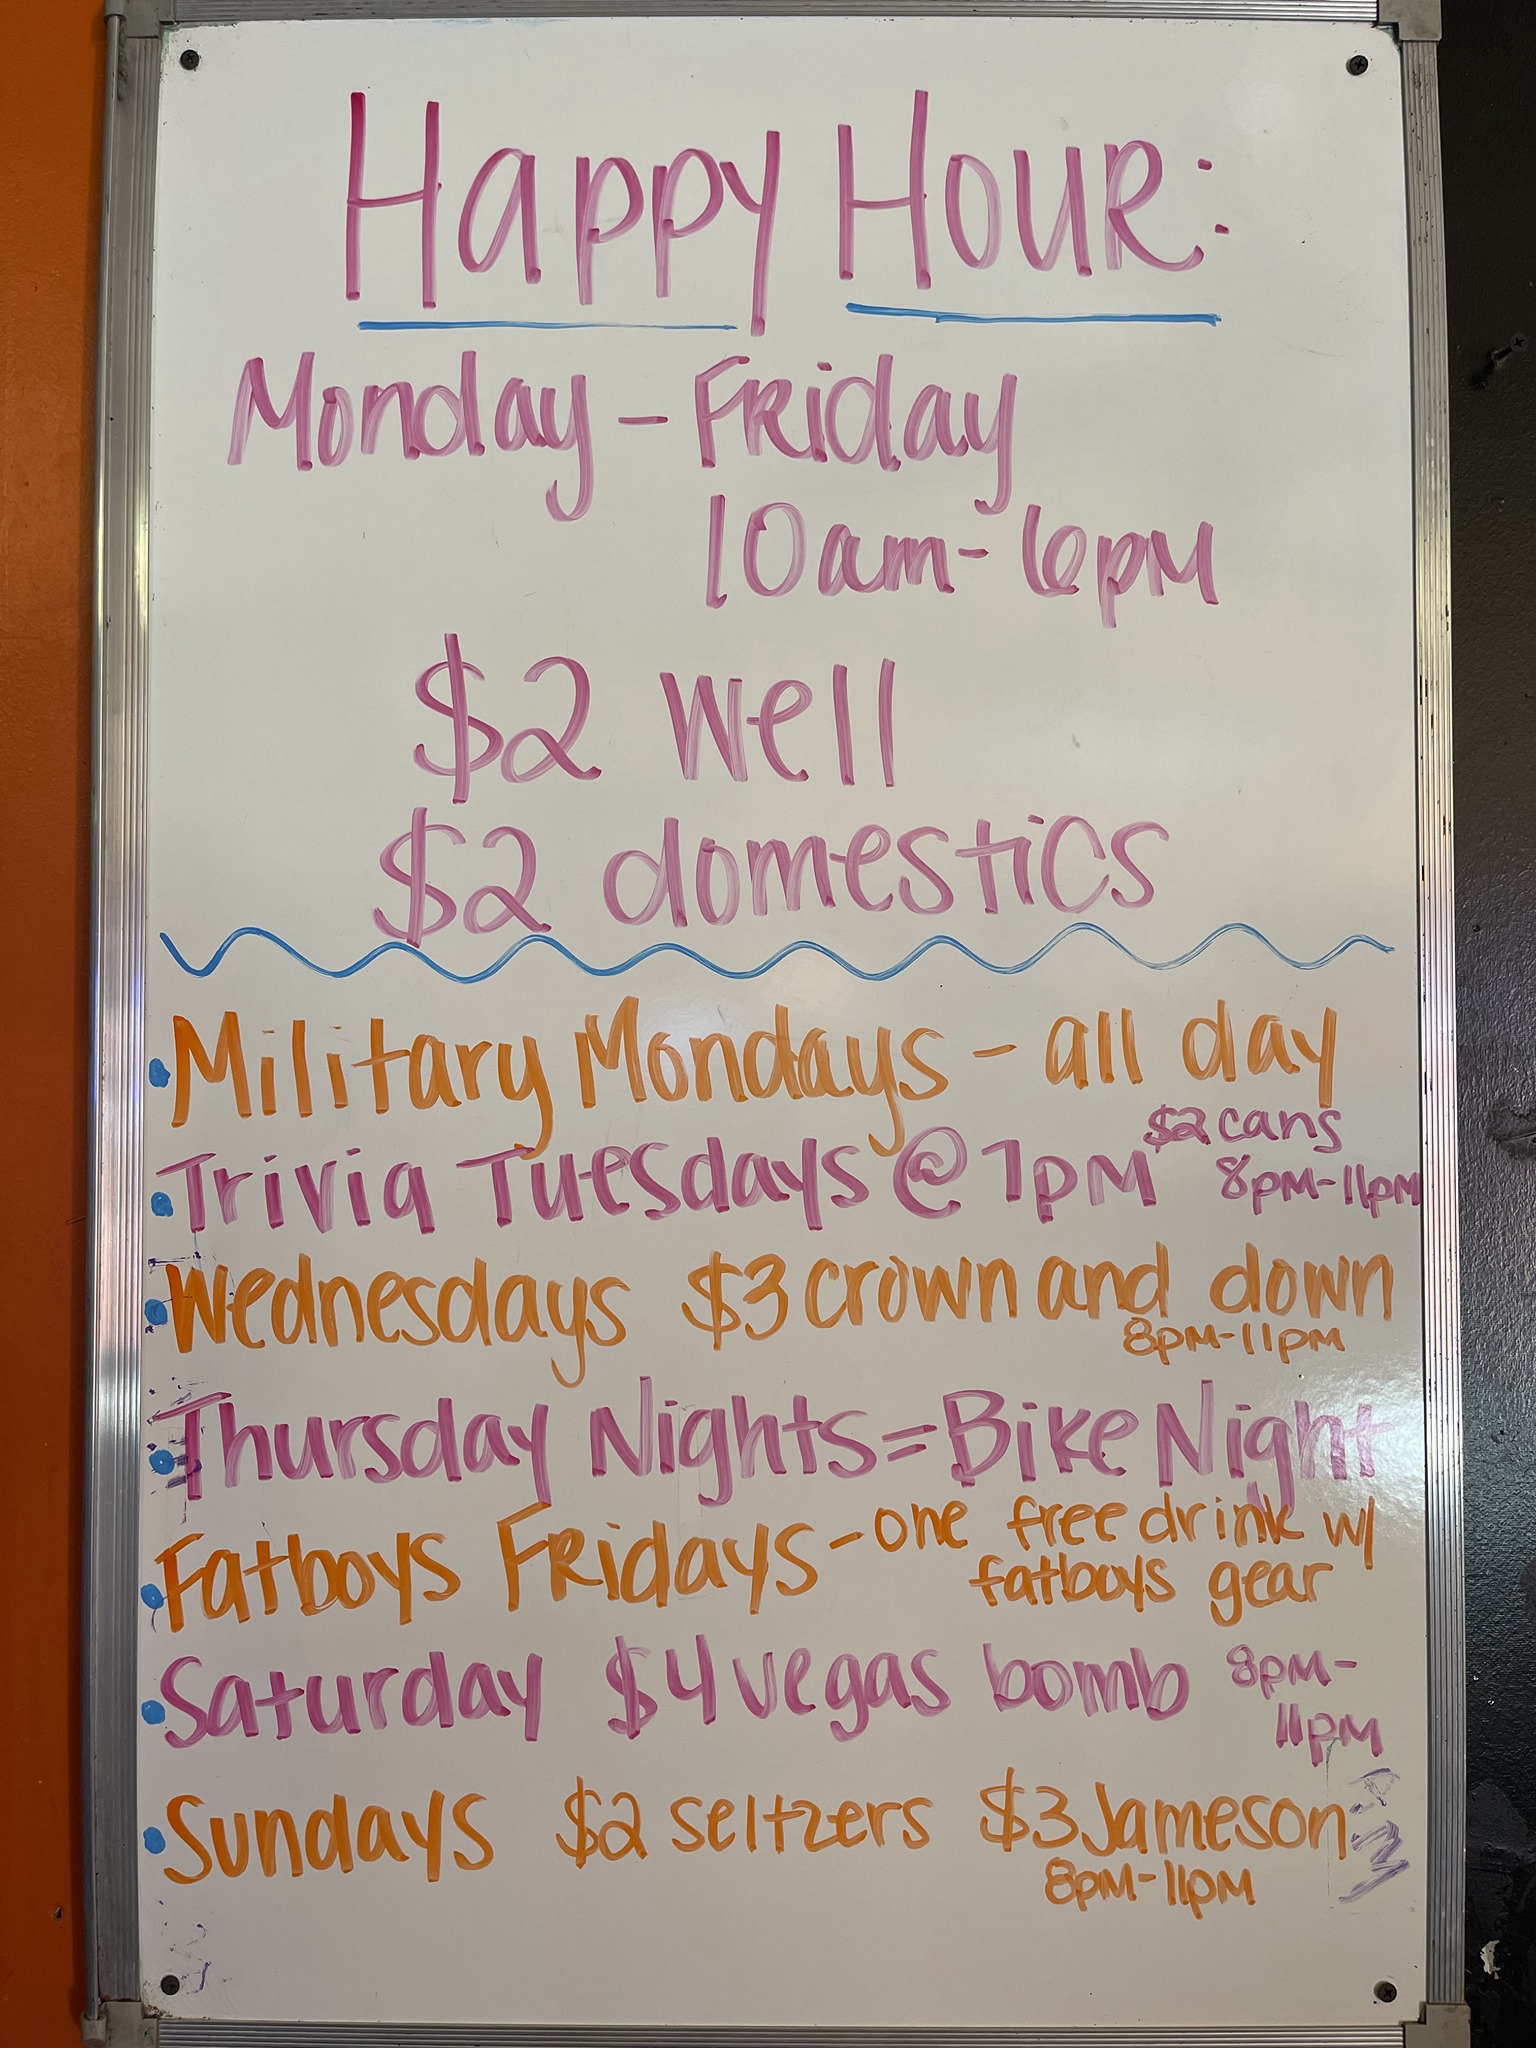 Happy Hour:
Monday - Friday
10am - 6pm
$2 well
$2 domestics
• Military Mondays - all day
• Trivia Tuesdays @ 7pm $2 cans
8pm-11pm
• Wednesdays $3 crown and down
8pm-11pm
• Thursday Nights = Bike Night
• Fatboys Fridays - one free drink w/
fatboys gear
• Saturday $4 vegas bomb 8pm-
11pm
• Sundays $2 seltzers $3 Jameson
8pm-11pm